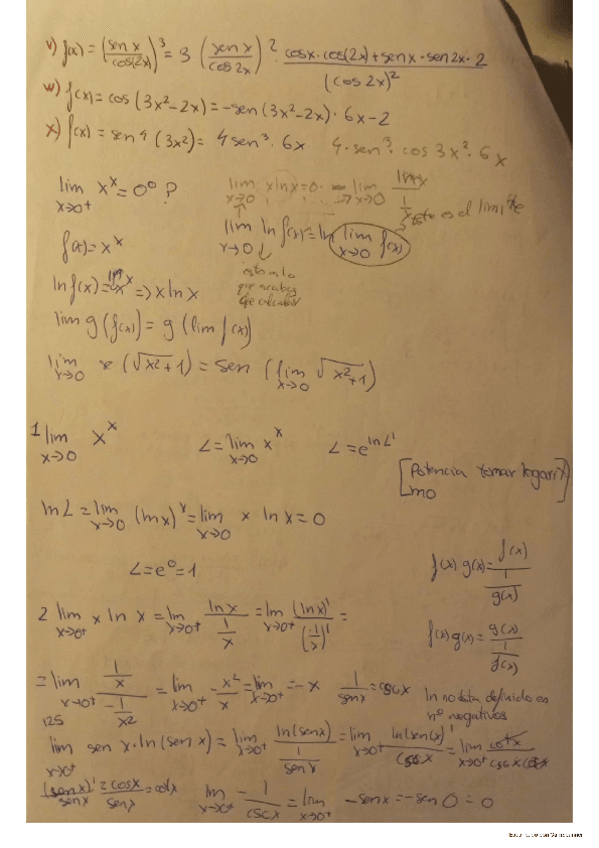 v) f(x) = (sen x / cos(2x))^3 = 3 (sen x / cos 2x)^2 · (cos x · cos(2x) + sen x · sen 2x · 2) / (cos 2x)^2
w) f(x) = cos (3x^2 - 2x) = -sen (3x^2 - 2x) · 6x - 2
x) f(x) = sen^4 (3x^2) = 4 sen^3 · 6x 4 · sen^3 · cos 3x^2 · 6x
lim x→0+ x^x = 0^0 ?
lim x→0 x ln x = 0 lim x→0 ln x / (1/x)
esto es el limite
f(x) = x^x
lim x→0 ln f(x) = ln lim x→0 f(x)
ln f(x) = ln x^x => x ln x
lim g(f(x)) = g(lim f(x))
lim x→0 (√x^2+1) = sen (lim x→0 √x^2+1)
1 lim x→0 x^x L = lim x→0 x^x L = e^ln L
[Potencia tomar logaritmo]
ln L = lim x→0 (ln x)^x = lim x→0 x ln x = 0
L = e^0 = 1
f(x) g(x) = f(x) / (1/g(x))
2 lim x→0+ x ln x = lim x→0+ ln x / (1/x) = lim x→0+ (ln x)' / (1/x)' =
f(x) g(x) = g(x) / (1/f(x))
= lim x→0+ (1/x) / (-1/x^2) = lim x→0+ -x^2/x = lim x→0+ = -x 1/sen x = csc x
ln no está definido en nº negativos
125
lim x→0+ sen x · ln (sen x) = lim x→0+ ln(sen x) / (1/sen x) = lim x→0+ ln(sen(x))' / csc x = lim x→0+ cot x / csc x cot x
(sen x)' / sen x = cos x / sen x = cot x lim x→0+ - 1/csc x = lim x→0+ -sen x = -sen 0 = 0